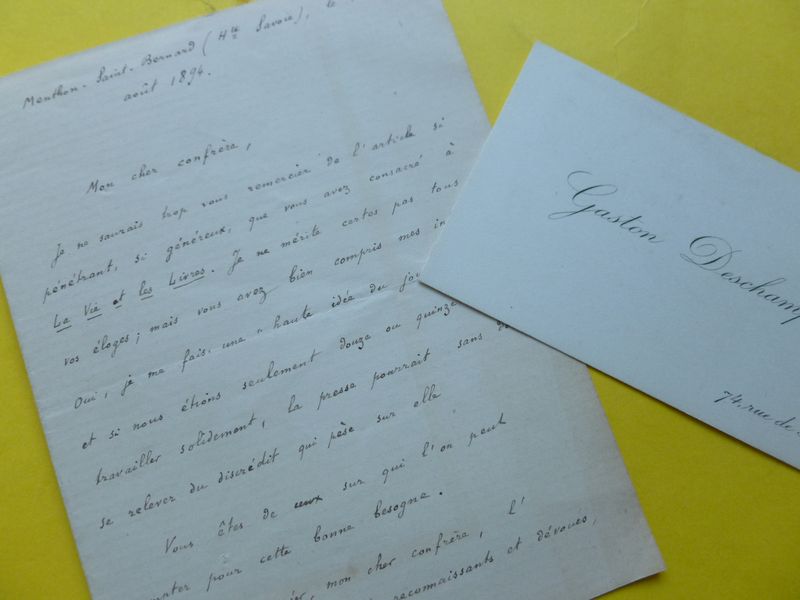 Menthon-Saint-Bernard (Hte Savoie), le
août 1894.
Mon cher confrère,
Je ne saurais trop vous remercier de l'article si
pénétrant, si généreux, que vous avez consacré à
La Vie et les Livres. Je ne mérite certes pas tous
vos éloges ; mais vous avez bien compris mes in
Oui, je me fais une "haute idée du jou
et si nous étions seulement douze ou quinze
travailler solidement, la presse pourrait sans
se relever du discrédit qui pèse sur elle
Vous êtes de ceux sur qui l'on peut
mpter pour cette bonne besogne.
mon cher confrère, l'
reconnaissants et dévoués,
Gaston Deschamp
74, rue de